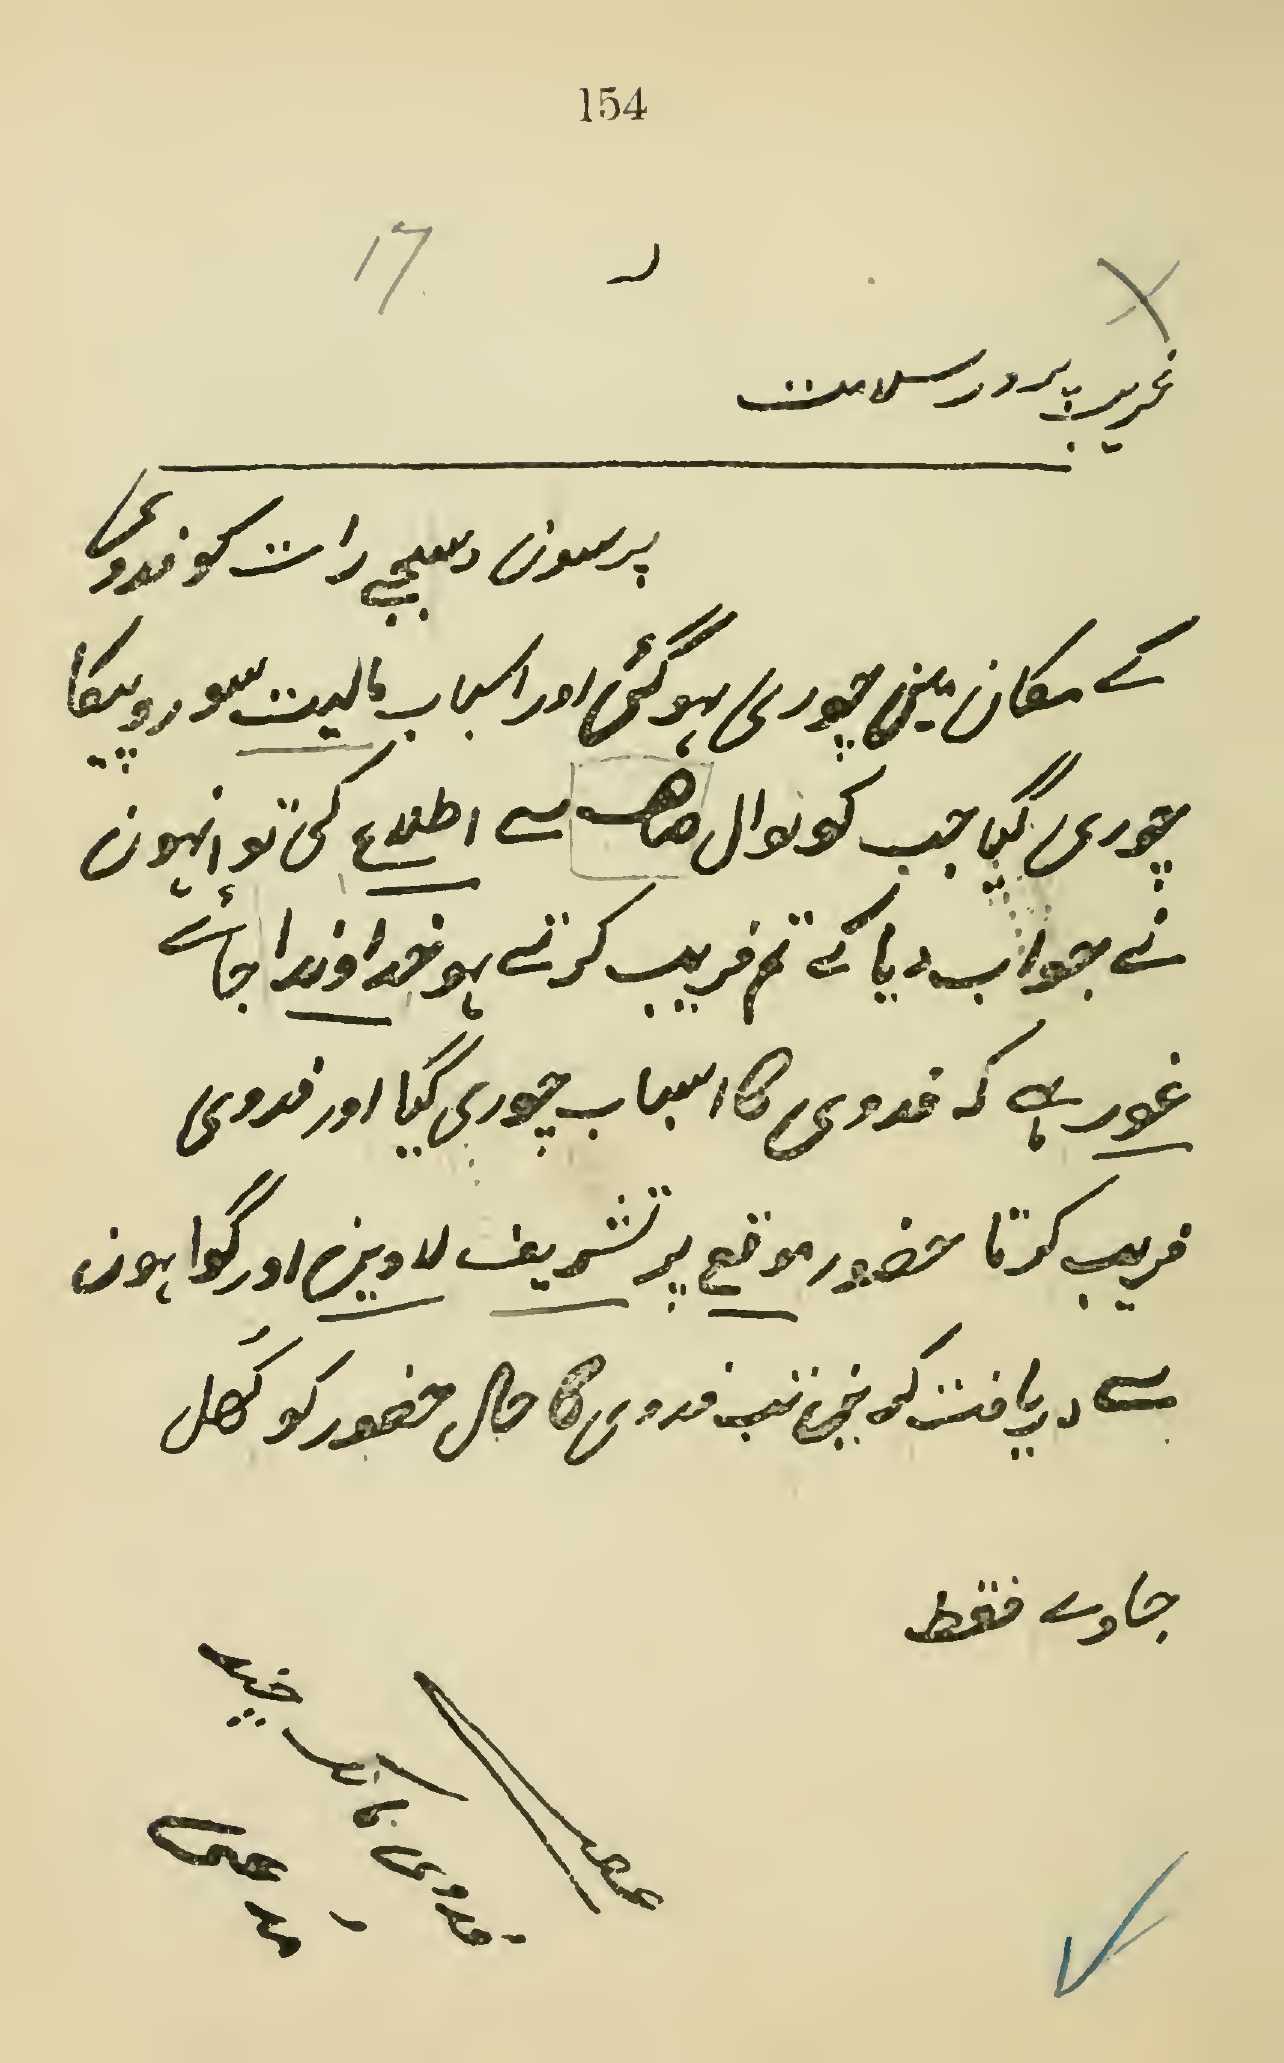 154
17
غریب پرور سلامت
پرسون دسبجے رات کو فدوی
کے مکان مین چوری ہوگئی اور اسباب مالیت سو روپیکا
چوری گیا جب کوتوال صاحب سے اطلاع کی تو انہون
نے جواب دیا کے تم فریب کرتے ہو خداوندا جائے
غور ہے کہ فدوی کا اسباب چوری گیا اور فدوی
فریب کرتا حضور موقع پر تشریف لاوین اور گواہون
سے دریافت کرین تب فدوی کا حال حضور کو کُھل
جاوے فقط
فدوی نانک چند